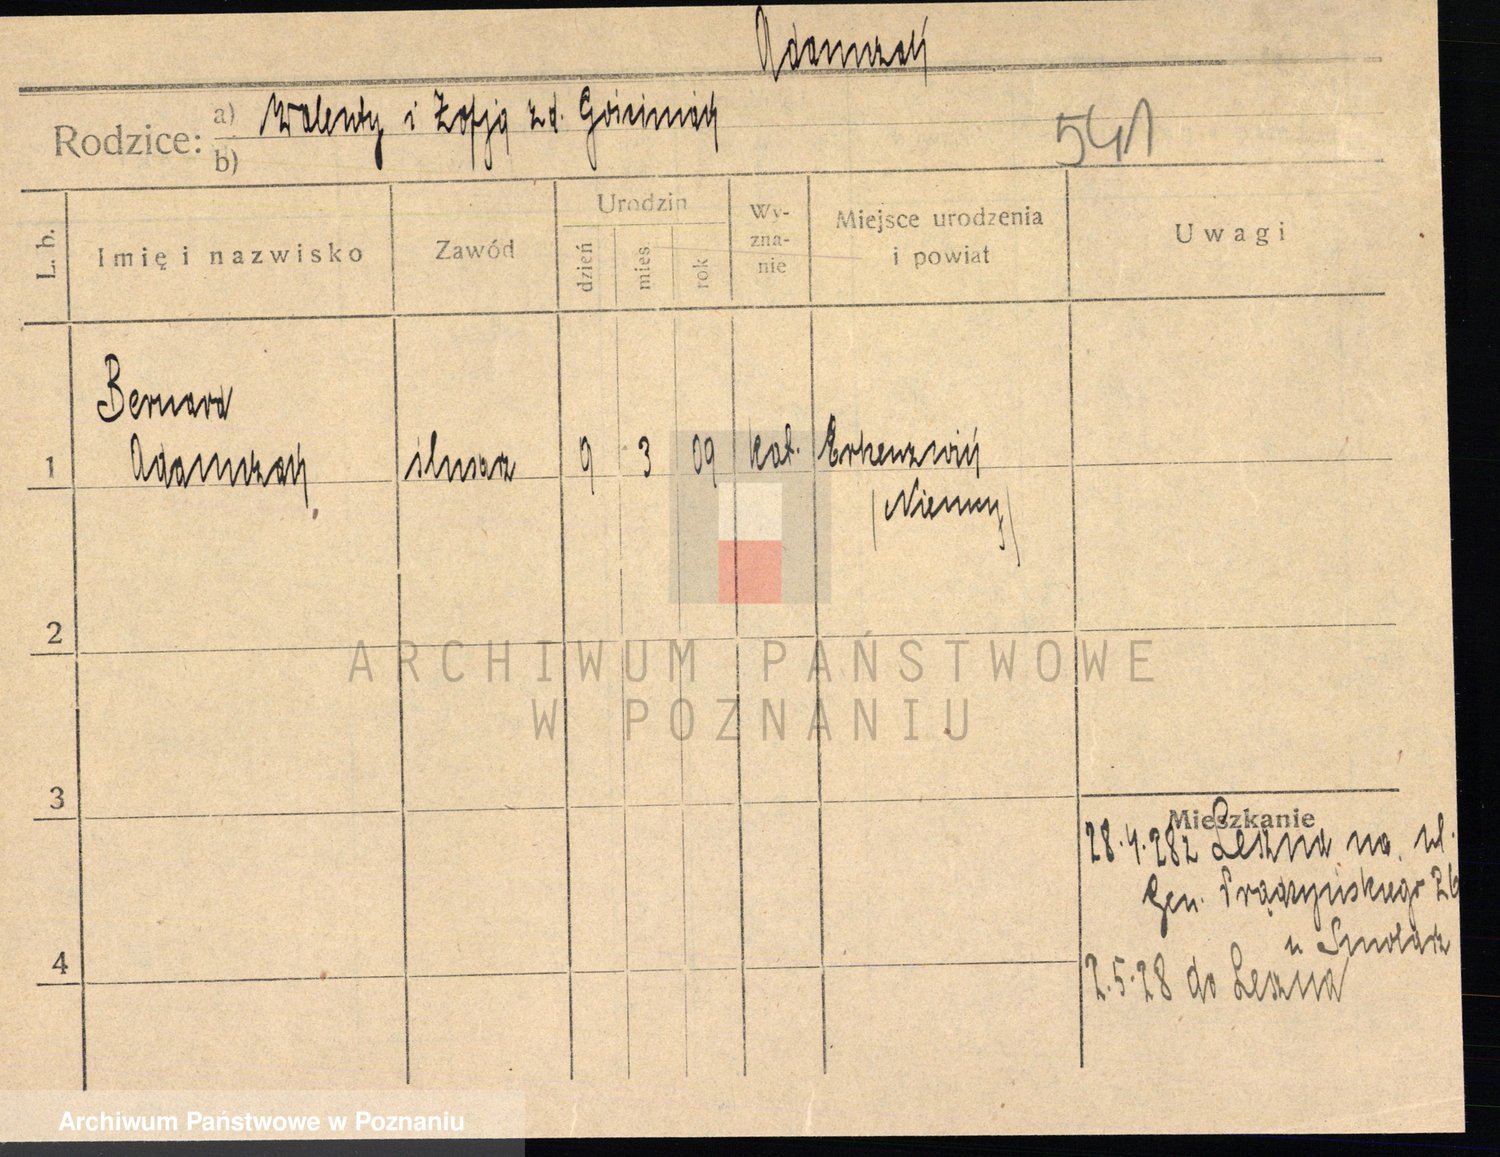 Adamczak
Rodzice: a) Walenty i Zofja z d. Goicimiak
b)
541
L. b.
Imię i nazwisko
Zawód
Urodzin
dzień
mies.
rok
Wy-
zna-
nie
Miejsce urodzenia
i powiat
Uwagi
Bernard
1 Adamczak ślusarz 9 3 09 kat. Erkenzwik
(Niemcy)
2
3
4
ARCHIWUM PAŃSTWOWE
W POZNANIU
Mieszkanie
28.4.28 z Leszna na ul.
Gen. Prądzyńskiego 26
u Smolarz
2.5.28 do Leszna
Archiwum Państwowe w Poznaniu